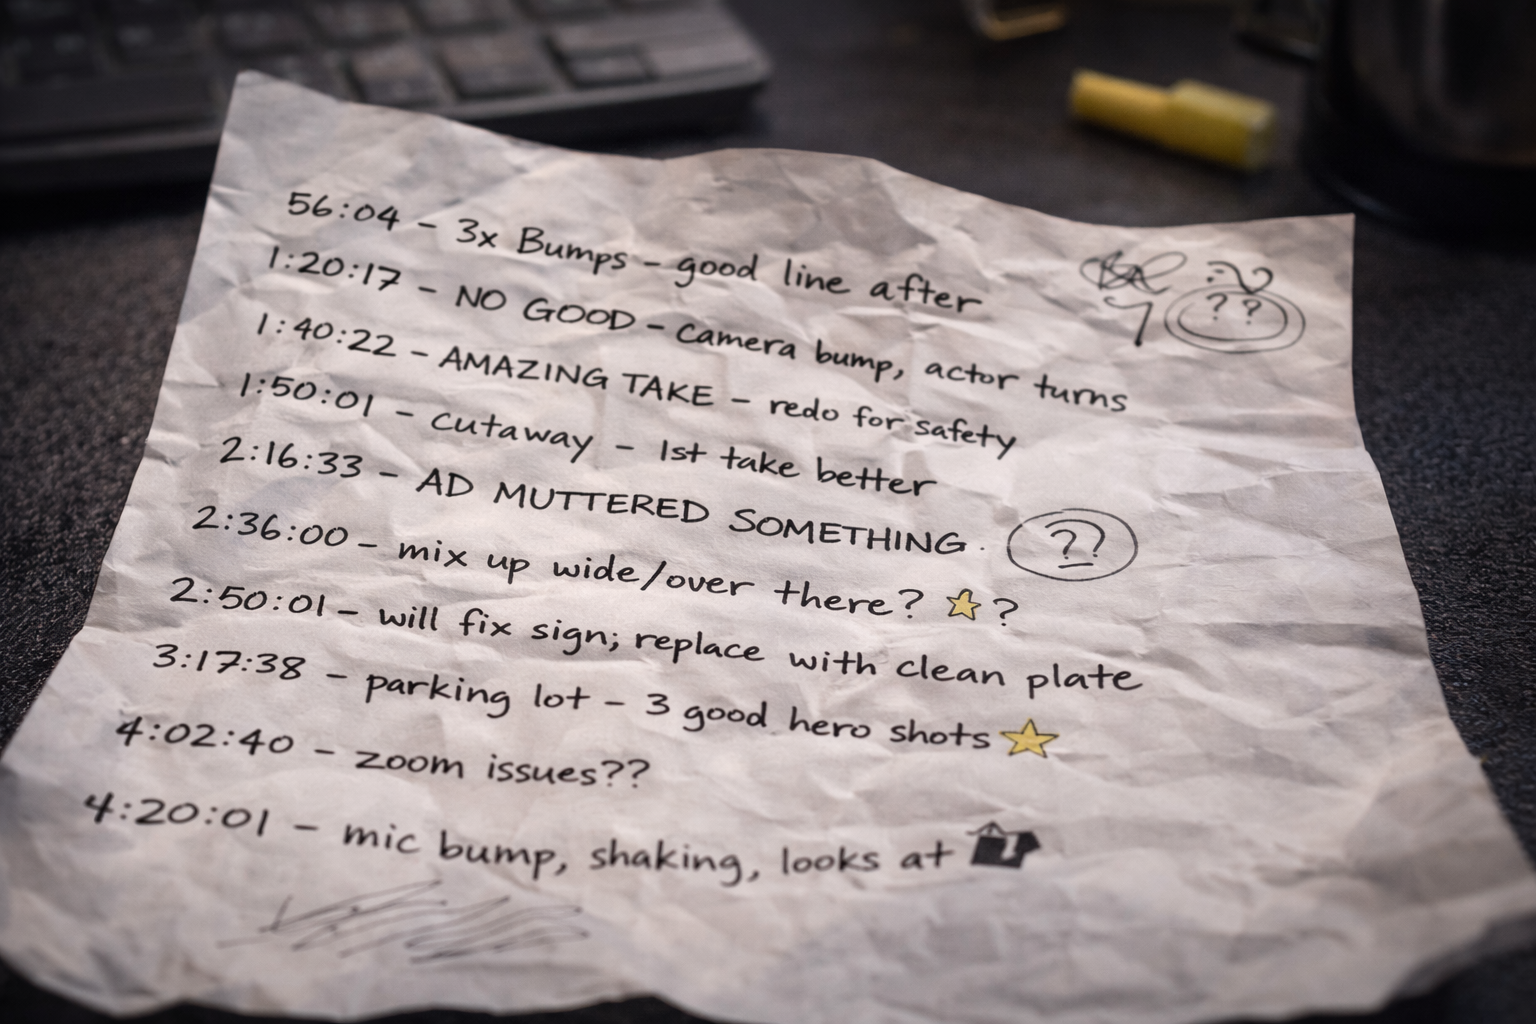 56:04 – 3x Bumps – good line after
1:20:17 – NO GOOD – camera bump, actor turns
1:40:22 – AMAZING TAKE – redo for safety
1:50:01 – cutaway – 1st take better
2:16:33 – AD MUTTERED SOMETHING. ??
2:36:00 – mix up wide/over there? ☆?
2:50:01 – will fix sign; replace with clean plate
3:17:38 – parking lot – 3 good hero shots ☆
4:02:40 – zoom issues??
4:20:01 – mic bump, shaking, looks at
? ?